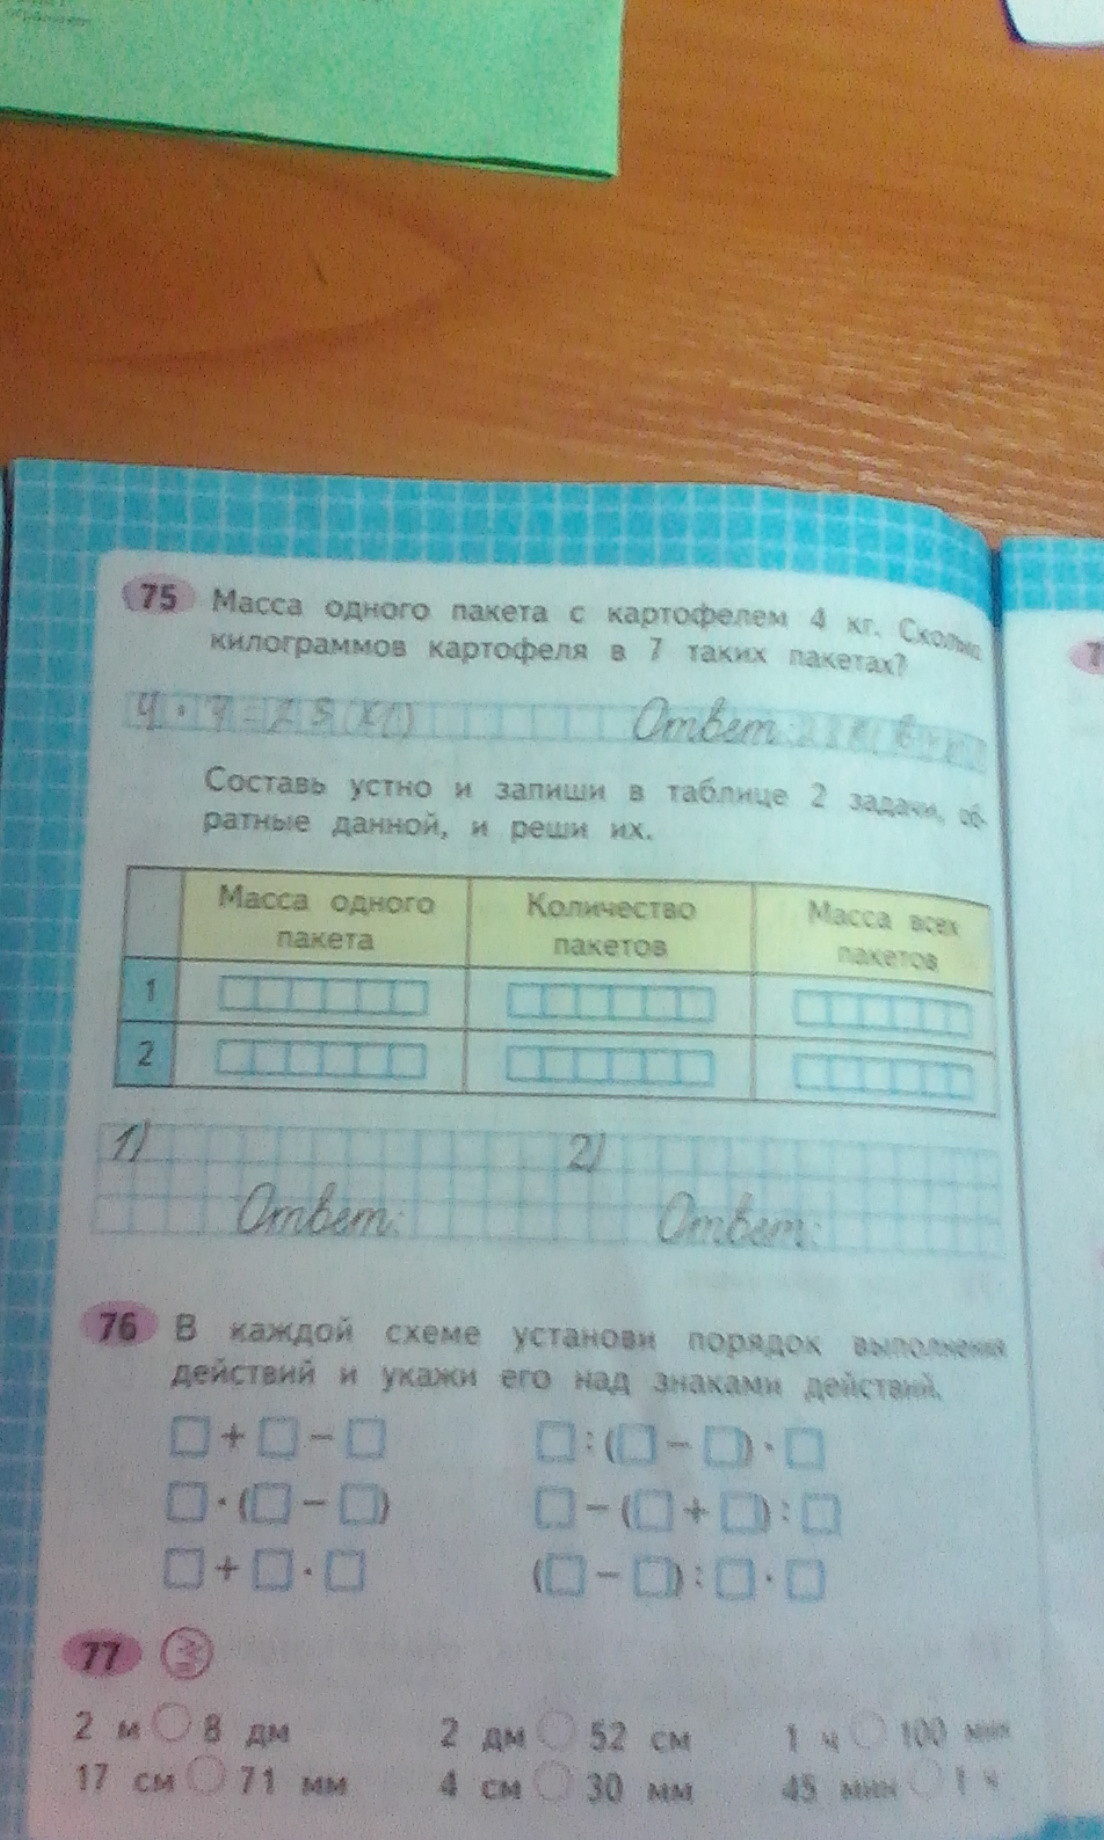 75 Масса одного пакета с картофелем 4 кг. Сколько
килограммов картофеля в 7 таких пакетах?
4 · 7 = 28 (кг) Ответ:
Составь устно и запиши в таблице 2 задачи, об-
ратные данной, и реши их.
Масса одного пакета Количество пакетов Масса всех пакетов
1
2
1) 2)
Ответ: Ответ:
76 В каждой схеме установи порядок выполнения
действий и укажи его над знаками действий.
□ + □ − □ □ : (□ − □) · □
□ · (□ − □) □ − (□ + □) : □
□ + □ · □ (□ − □) : □ · □
77
2 м ○ 8 дм 2 дм ○ 52 см 1 ч ○ 100 мин
17 см ○ 71 мм 4 см ○ 30 мм 45 мин ○ 1 ч